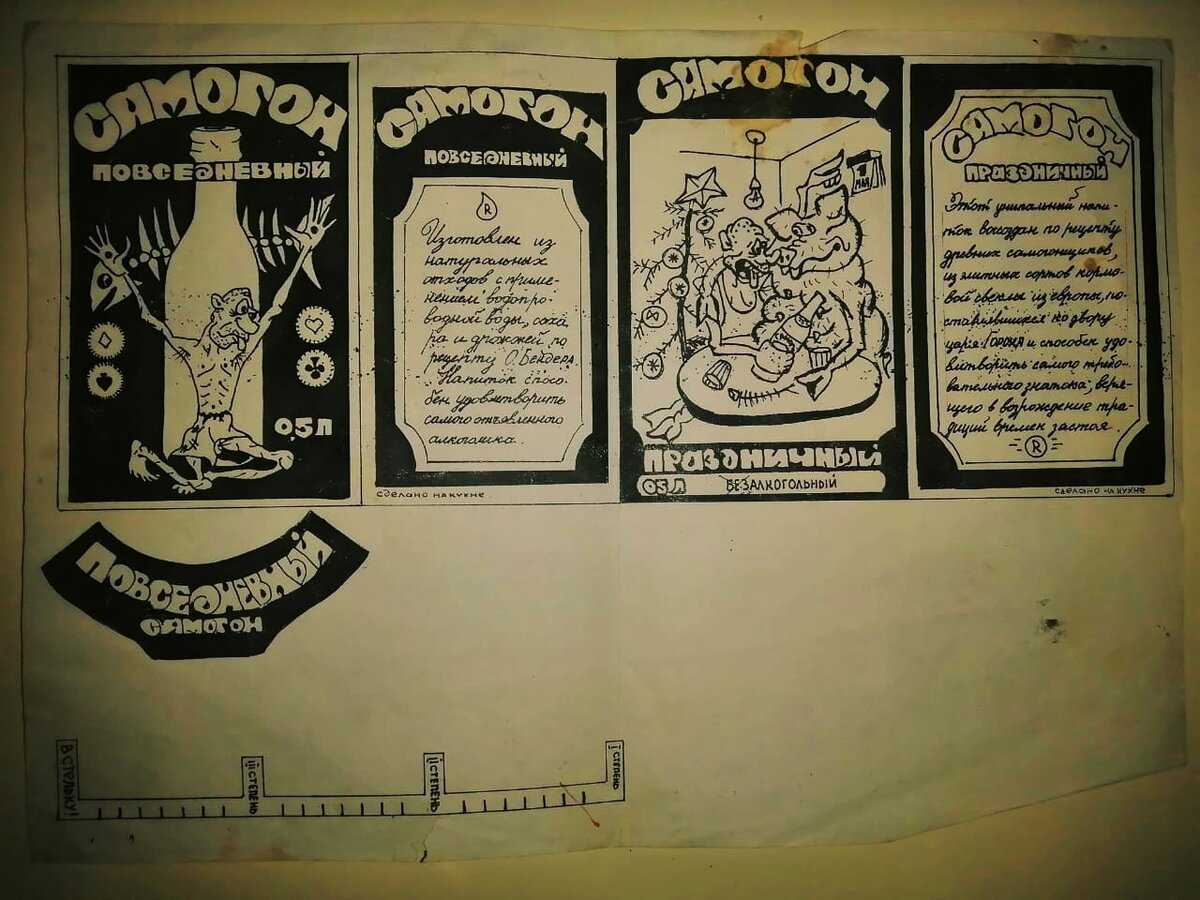 САМОГОН
ПОВСЕДНЕВНЫЙ
0,5 Л
САМОГОН
ПОВСЕДНЕВНЫЙ
R
Изготовлен из
натуральных
отходов с приме-
нением водопро-
водной воды, саха
ра и дрожжей по
рецепту О. Бендера.
Напиток спосо-
бен удовлетворить
самого отъявленного
алкоголика.
сделано на кухне
САМОГОН
1
МАЯ
ПРАЗДНИЧНЫЙ
0,5 Л БЕЗАЛКОГОЛЬНЫЙ
САМОГОН
ПРАЗДНИЧНЫЙ
Этот уникальный напи-
ток воссоздан по рецепту
древних самогонщиков,
из элитных сортов кормо-
вой свеклы из европы, по-
ставлявшихся ко двору
царя ГОРОХА и способен удо-
влетворить самого требо-
вательного знатока, веря-
щего в возрождение тра-
диций времен застоя.
R
сделано на кухне
ПОВСЕДНЕВНЫЙ
САМОГОН
В СТЕЛЬКУ!
III СТЕПЕНЬ
II СТЕПЕНЬ
I СТЕПЕНЬ